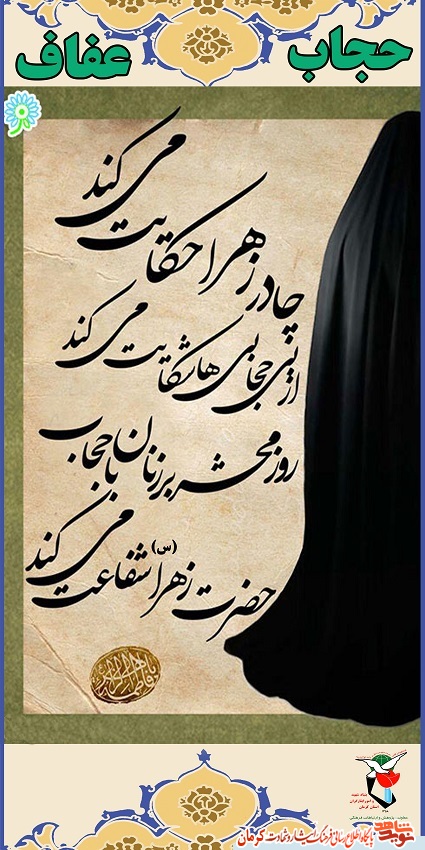 حجاب عفاف
چادر زهرا حکایت می کند
از بی حجابی ها شکایت می کند
روز محشر بر زنان با حجاب
حضرت زهرا (س) شفاعت می کند
نوید شاهد پایگاه اطلاع رسانی فرهنگ ایثار و شهادت کرمان